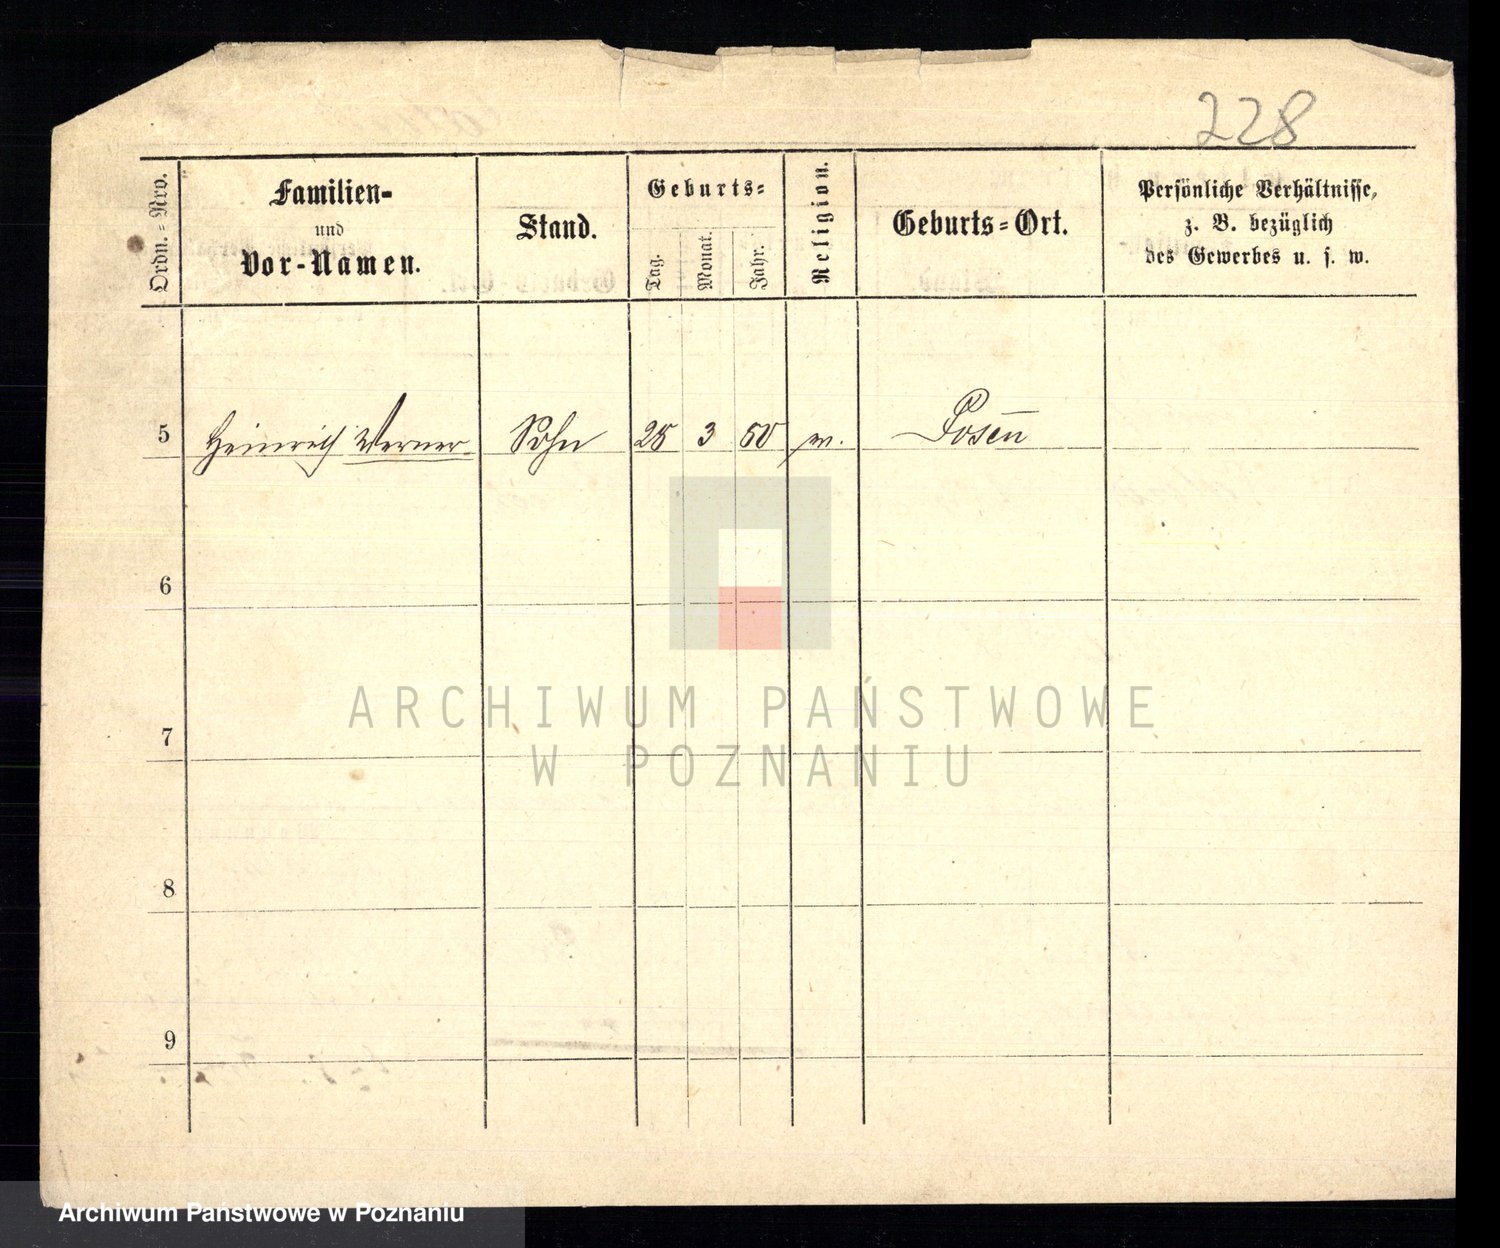 228
Ordn.=Nro.
Familien-
und
Vor-Namen.
Stand.
Geburts=
Tag.
Monat.
Jahr.
Religion.
Geburts=Ort.
Persönliche Verhältnisse,
z. B. bezüglich
des Gewerbes u. s. w.
5 Heinrich Werner Sohn 3 50 Posen
6
7
8
9
ARCHIWUM PAŃSTWOWE
W POZNANIU
Archiwum Państwowe w Poznaniu